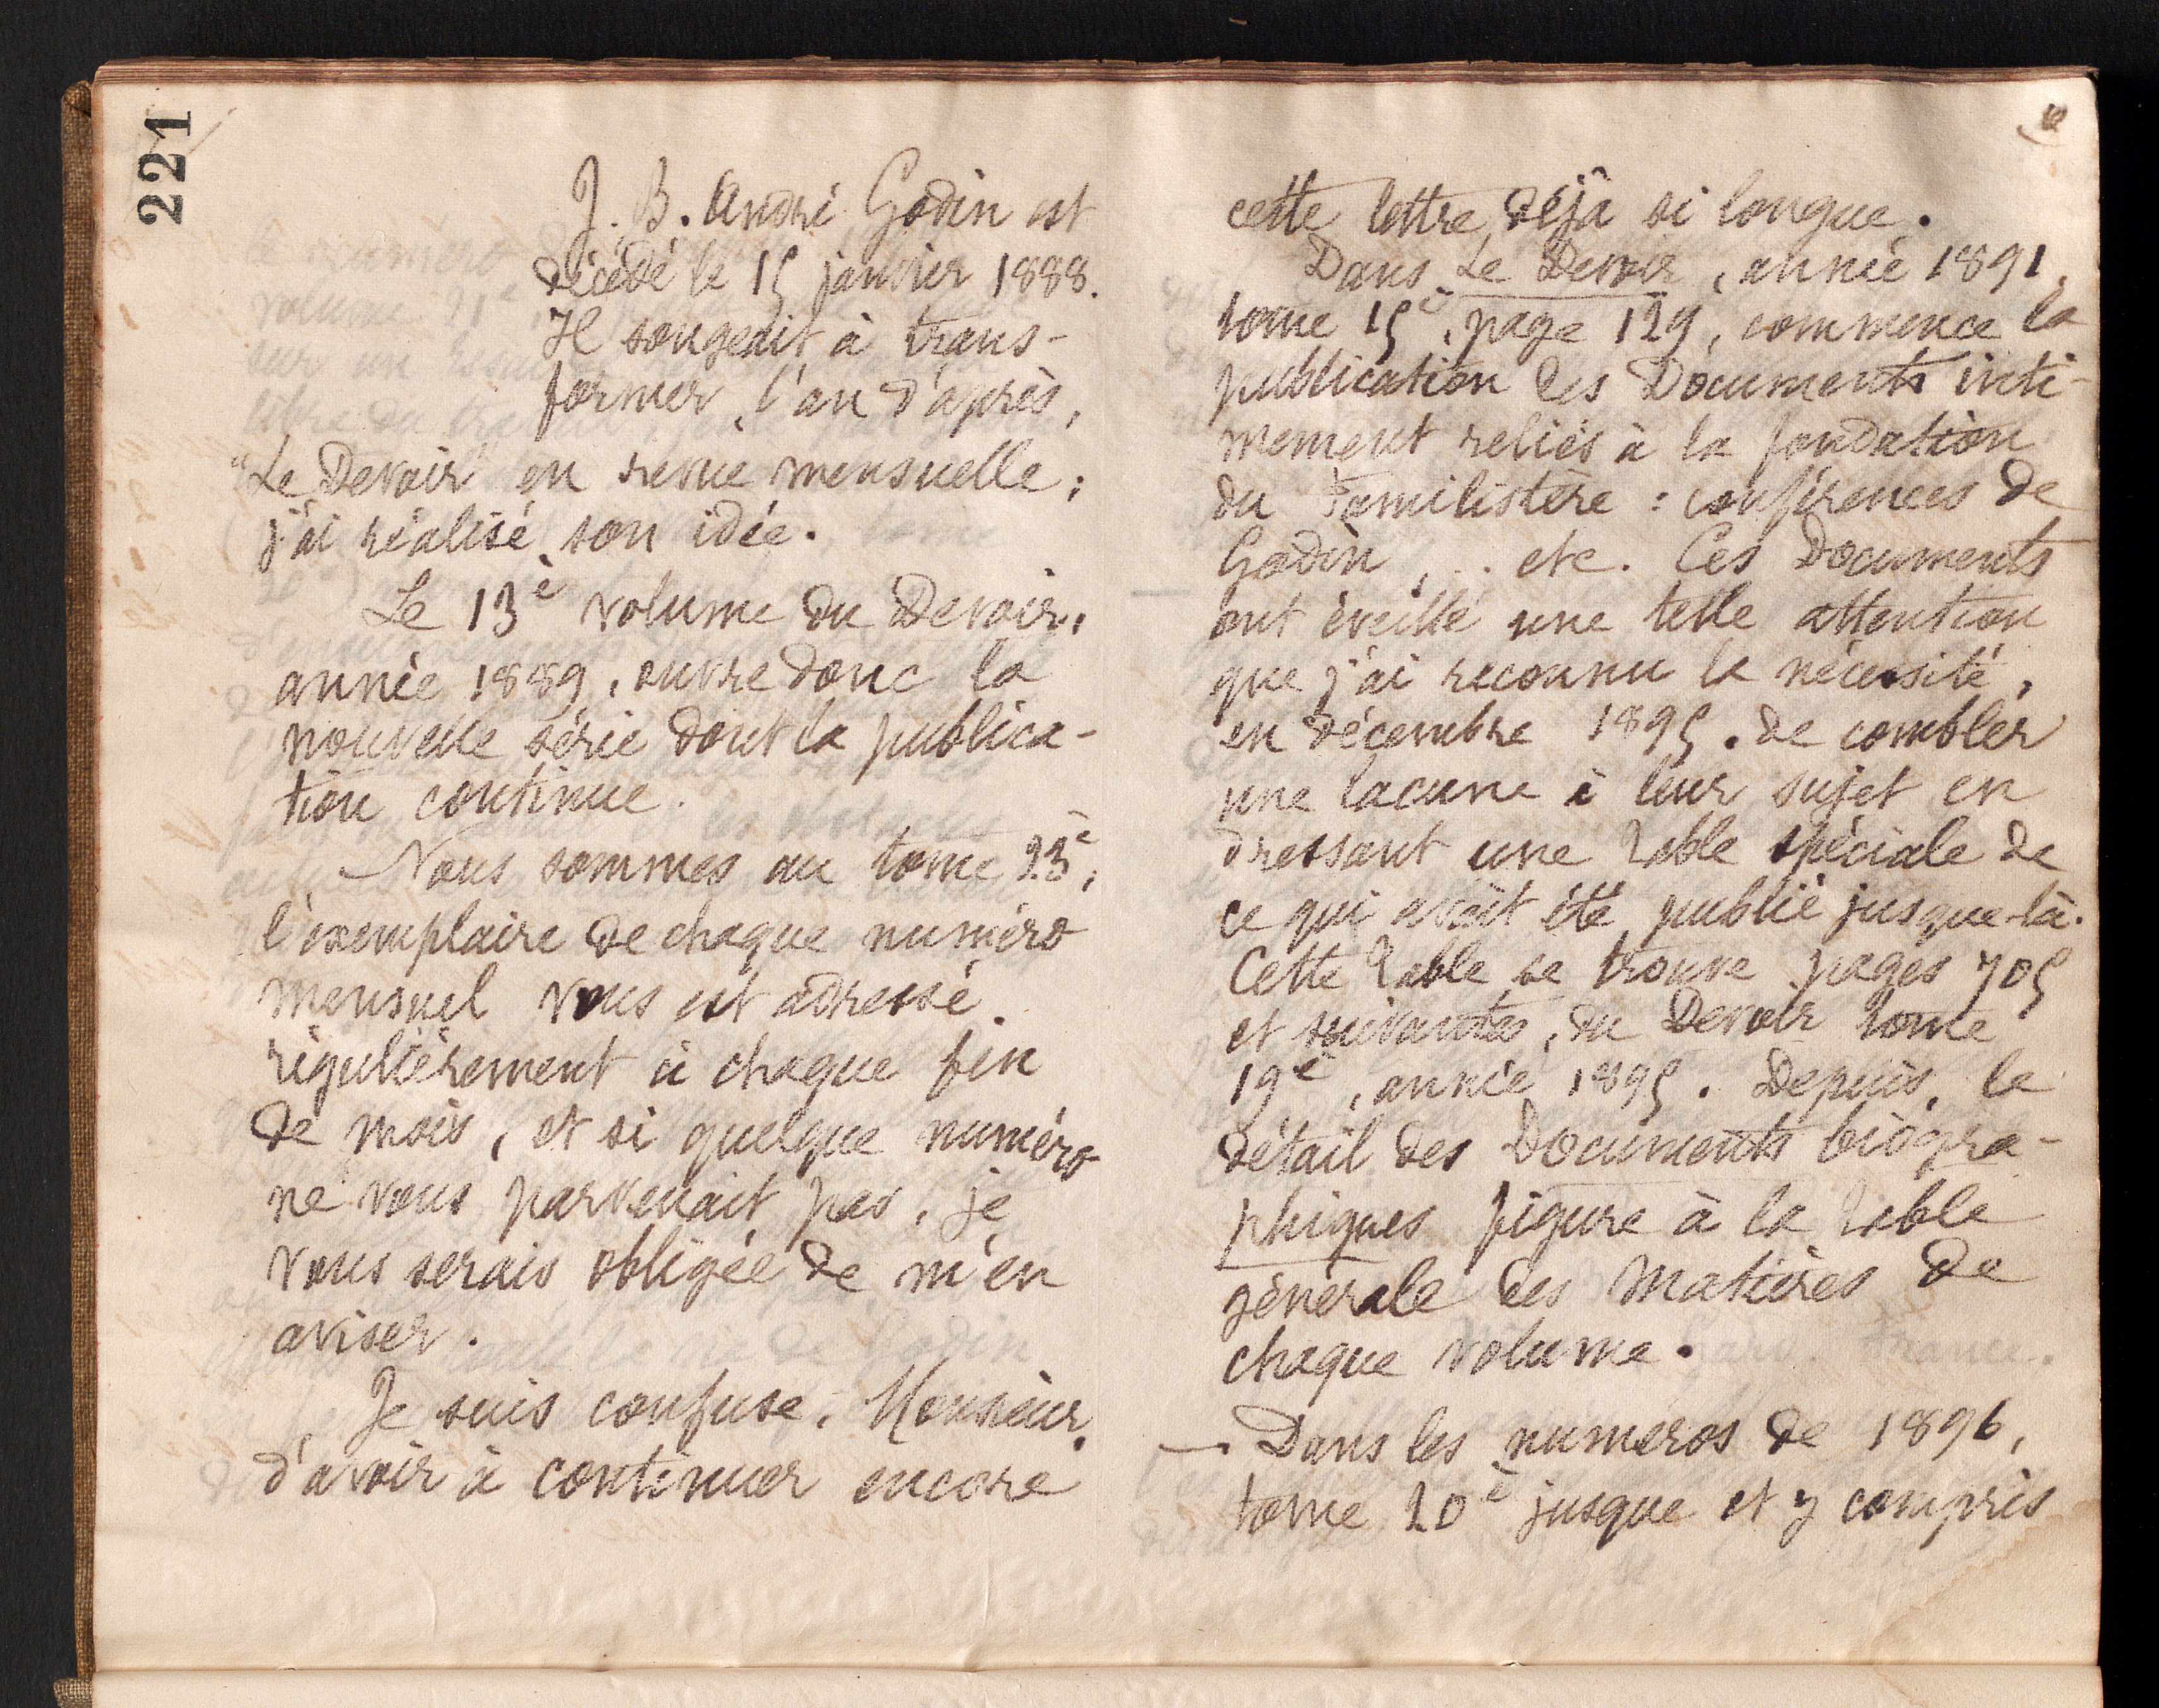 221
J. B. André Godin est
décédé le 15 janvier 1888.
Il songeait à trans-
former, l'an d'après,
"Le Devoir" en revue mensuelle;
j'ai réalisé son idée.
Le 13e volume du Devoir,
année 1889, ouvre donc la
nouvelle série dont la publica-
tion continue.
Nous sommes au tome 23e,
l'exemplaire de chaque numéro
mensuel vous est adressé
régulièrement à chaque fin
de mois, et si quelque numéro
ne vous parvenait pas, je
vous serais obligée de m'en
aviser.
Je suis confuse, Monsieur,
d'avoir à continuer encore
cette lettre déjà si longue.
Dans Le Devoir, année 1891,
tome 15e, page 129, commence la
publication des Documents inti-
mement reliés à la fondation
du Familistère : conférences de
Godin, .. etc. Ces Documents
ont éveillé une telle attention
que j'ai reconnu la nécessité,
en décembre 1895, de combler
une lacune à leur sujet en
dressant une Table spéciale de
ce qui avait été publié jusque-là.
Cette Table se trouve pages 705
et suivantes, du Devoir tome
19e, année 1895. Depuis, le
détail des Documents biogra-
phiques figure à la Table
générale des Matières de
chaque volume.
— Dans les numéros de 1896,
tome 20e jusque et y compris